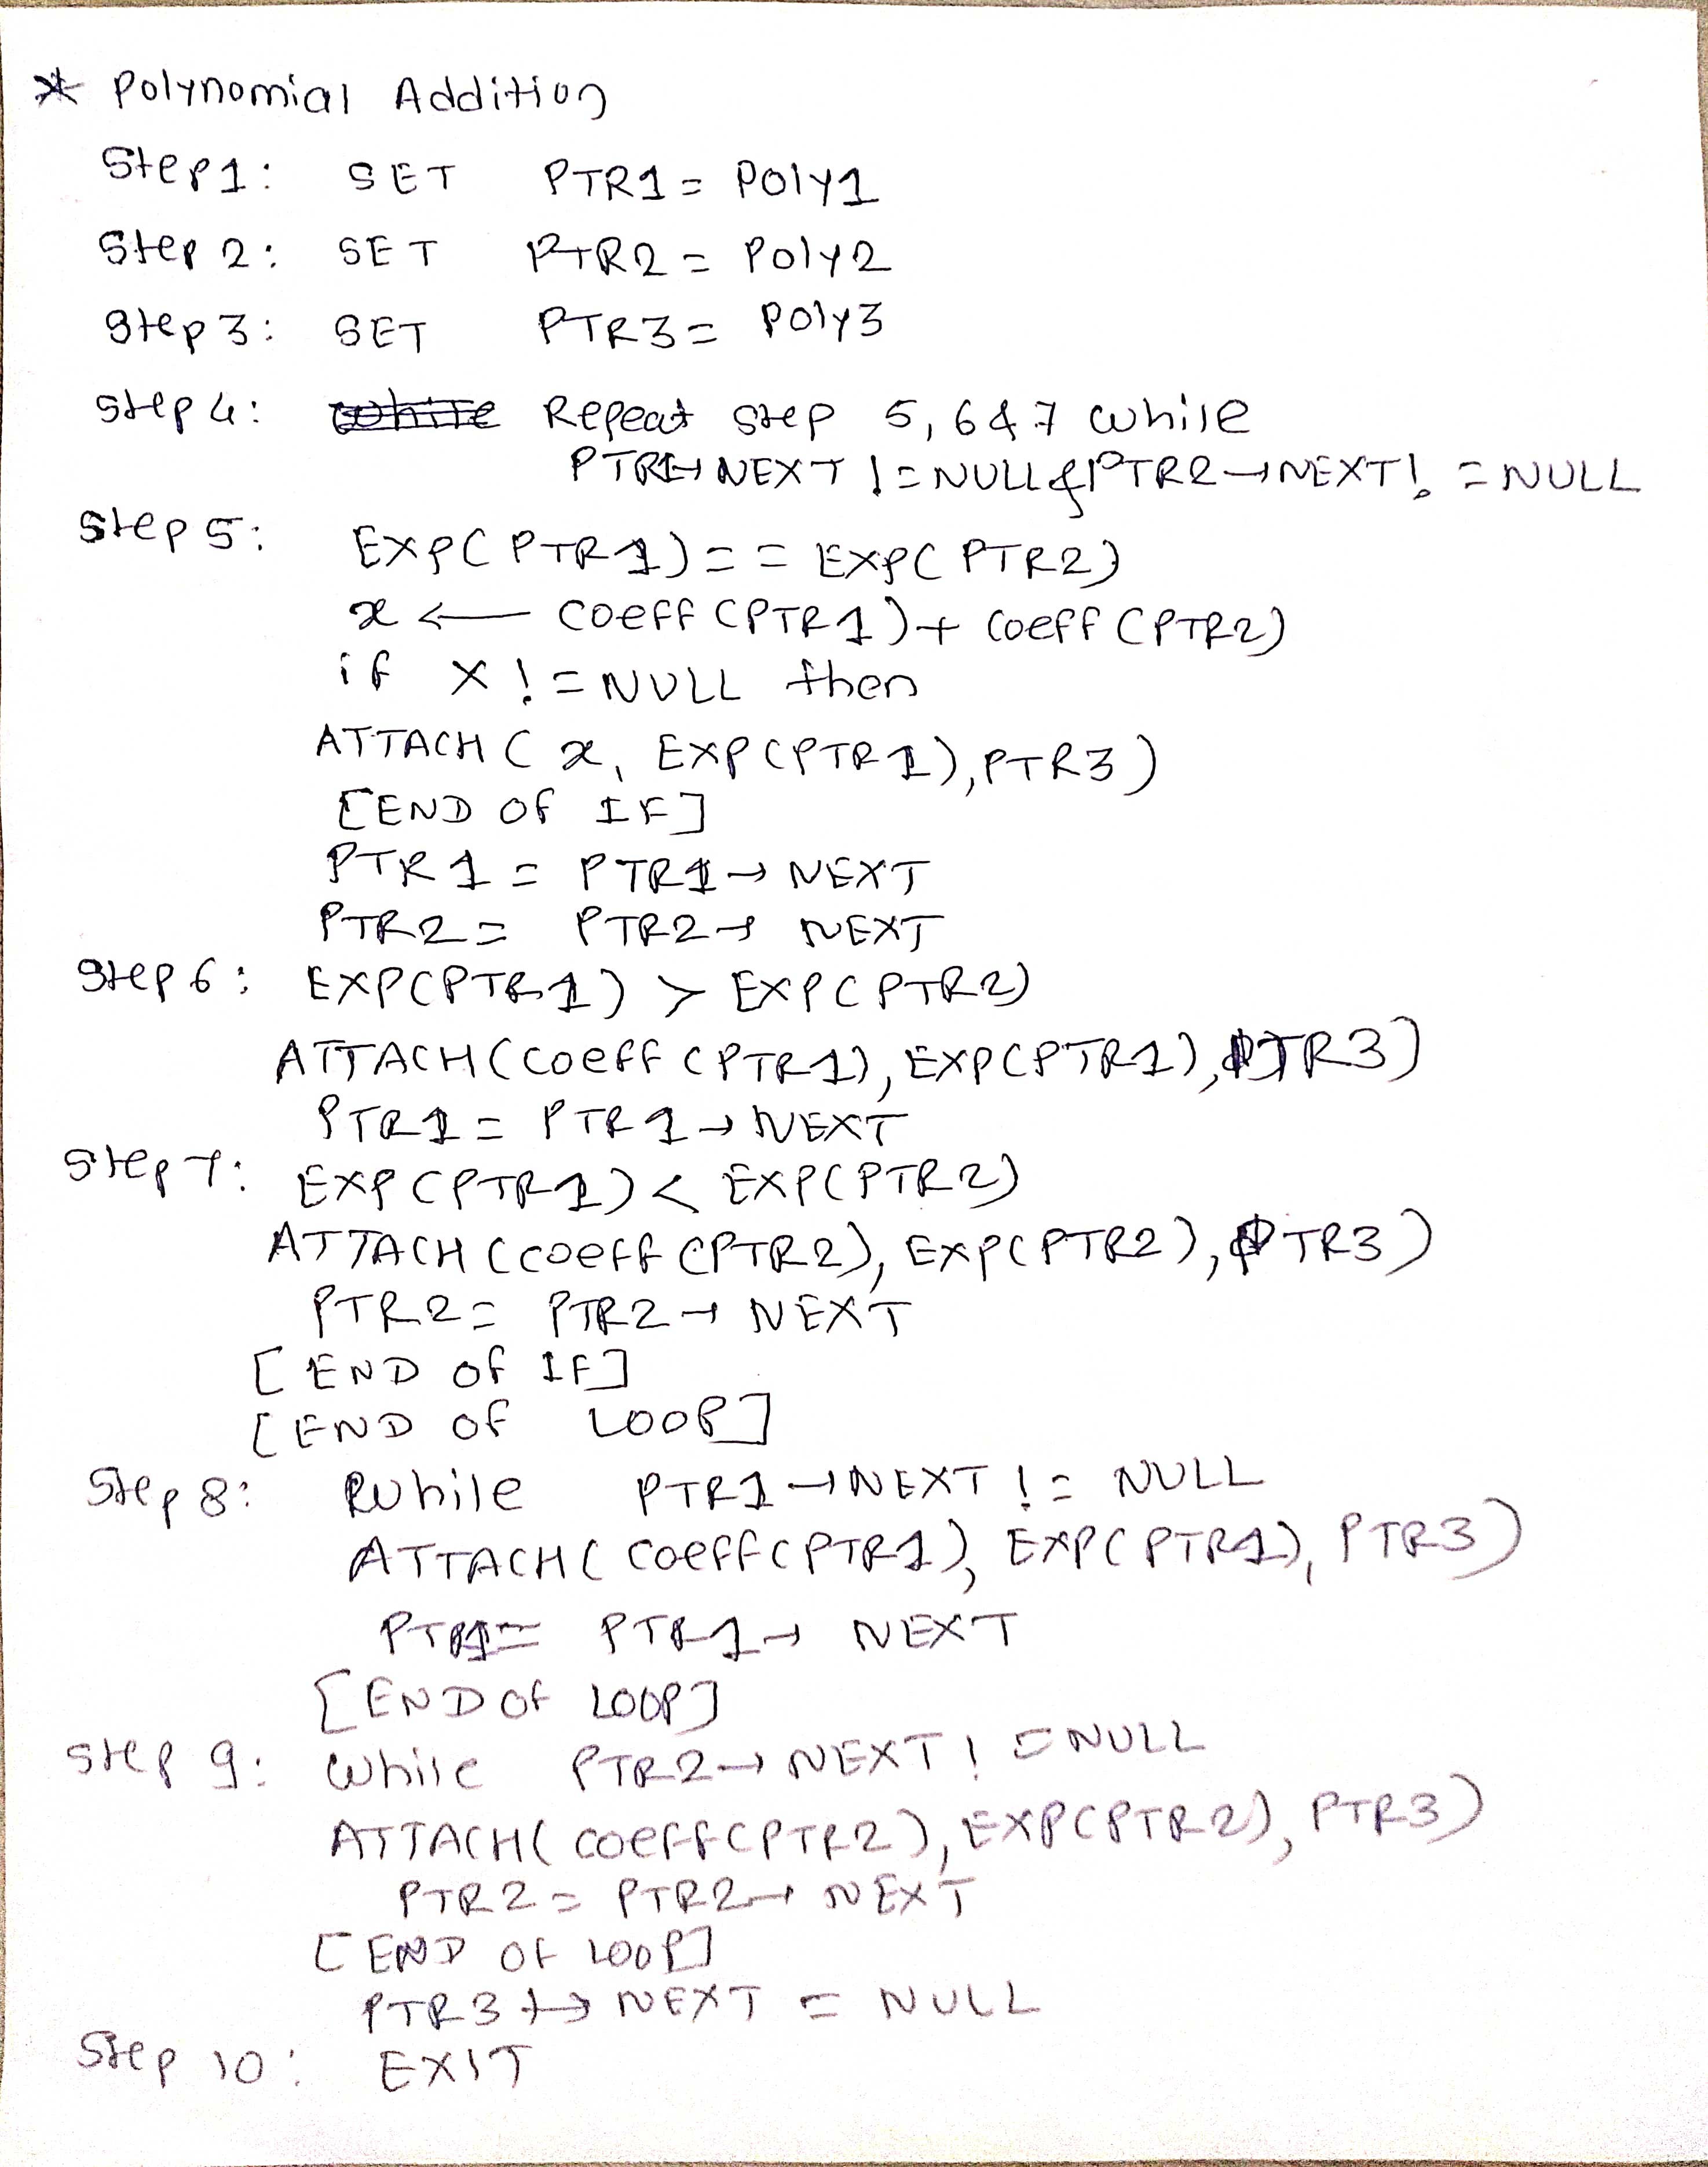 * Polynomial Addition
Step 1: SET PTR1 = Poly1
Step 2: SET PTR2 = Poly2
Step 3: SET PTR3 = Poly3
Step 4: Repeat step 5, 6 & 7 while
PTR1→NEXT != NULL & PTR2→NEXT! = NULL
Step 5: EXP(PTR1) == EXP(PTR2)
x ← coeff (PTR1) + coeff (PTR2)
if x != NULL then
ATTACH (x, EXP(PTR1), PTR3)
[END OF IF]
PTR1 = PTR1→ NEXT
PTR2 = PTR2→ NEXT
Step 6: EXP(PTR1) > EXP(PTR2)
ATTACH(coeff (PTR1), EXP(PTR1), PTR3)
PTR1 = PTR1→ NEXT
Step 7: EXP(PTR1) < EXP(PTR2)
ATTACH (coeff (PTR2), EXP(PTR2), PTR3)
PTR2 = PTR2→ NEXT
[END OF IF]
[END OF LOOP]
Step 8: While PTR1→NEXT != NULL
ATTACH( coeff(PTR1), EXP(PTR1), PTR3)
PTR1= PTR1→ NEXT
[END OF LOOP]
Step 9: while PTR2→ NEXT! = NULL
ATTACH( coeff(PTR2), EXP(PTR2), PTR3)
PTR2 = PTR2→ NEXT
[END OF LOOP]
PTR3→ NEXT = NULL
Step 10: EXIT